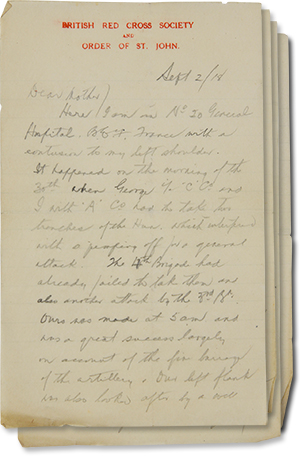 BRITISH RED CROSS SOCIETY
AND
ORDER OF ST. JOHN.
Sept 2/18
Dear Mother,
Here I am in No 20 General
Hospital, B.E.F. France with a
contusion to my left shoulder.
It happened on the morning of the
30th when George & "C" Co and
I with "A" Co had to take two
trenches of the Huns, which interfered
with a jumping off for a general
attack. The 4th Brigade had
already failed to take them in
also another attack by the 3rd Bn.
Ours was made at 5 am and
was a great success largely
on account of the fine barrage
of the artillery. Our left flank
was also looked after by a